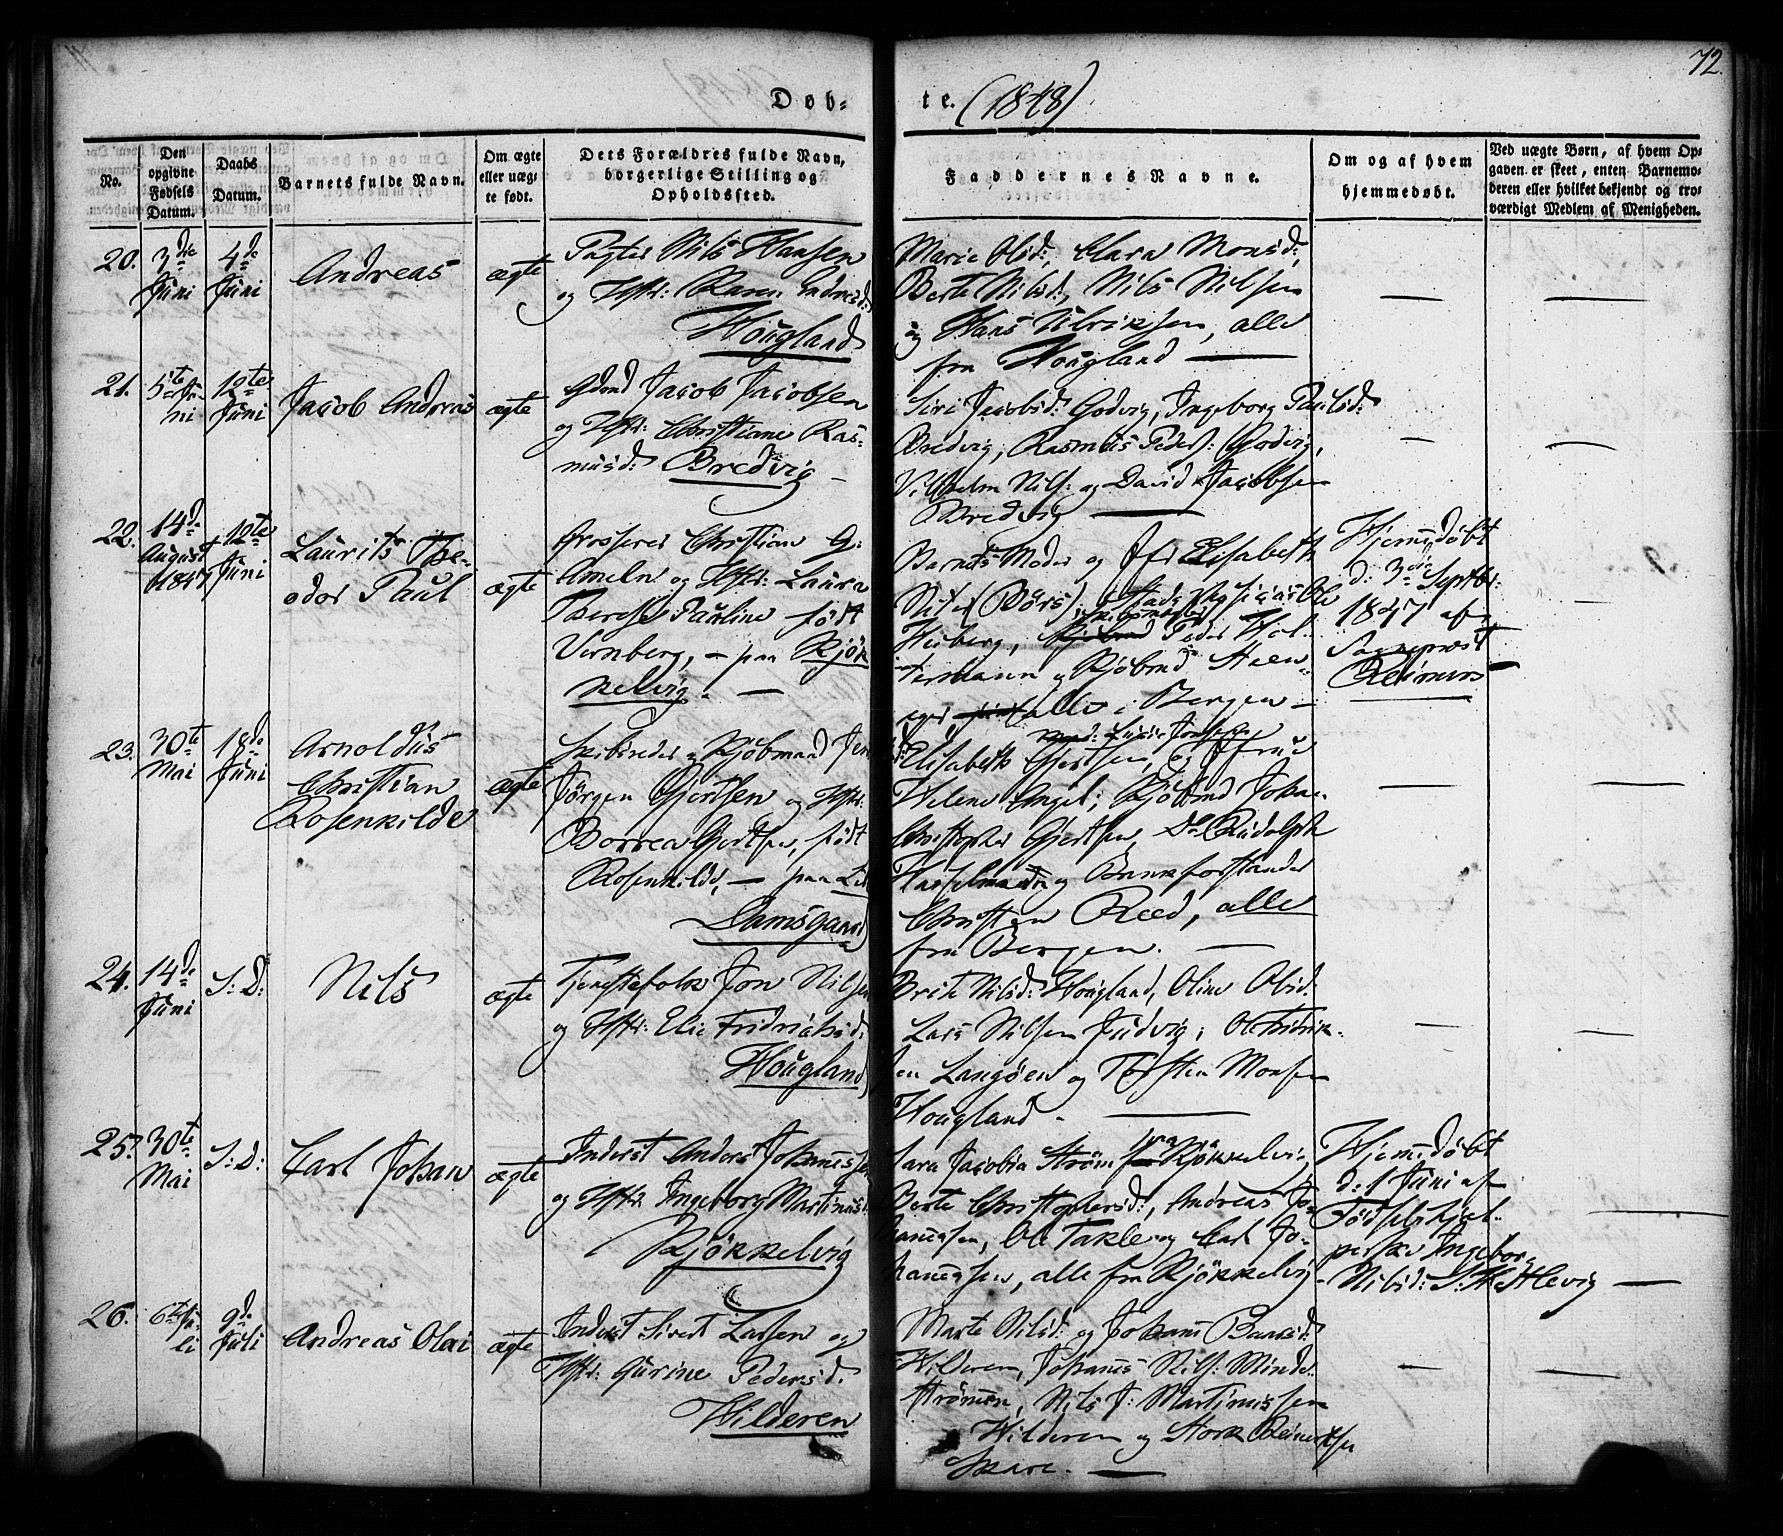 72.
Døb-
te. (1848)
No.
Den
opgivne
Fødsels
Datum.
Daabs
Datum.
Barnets fulde Navn.
Om ægte
eller uæg-
te født.
Dets Forældres fulde Navn,
borgerlige Stilling og
Opholdssted.
Faddernes Navne.
Om og af hvem
hjemmedøbt.
Ved uægte Børn, af hvem Op-
gaven er skeet, enten Barnemo-
deren eller hvilket bekjendt og tro-
værdigt Medlem af Menigheden.
20.
3die
Juni
4de
Juni
Andreas
ægte
Nils Hansen
og Hstr: Karen
Hougland
Marie Olsd:, Clara Monsd:,
Berte Nilsd:, Nils Nilsen
og Hans Ulriksen, alle
fra Hougland
21.
5te Ju-
ni
12te
Juni
Jacob Andreas
ægte
Gdmd Jacob Jacobsen
og Hstr: Christiane Ras-
musd: Bredvig
Siri Jacobsd: Godvig, Ingeborg Paulsd:
Bredvig, Rasmus Peders: Godvig,
Vilhelm Nils: og David Jacobsen
Bredvig
22.
14de
August
1847
12te
Juni
Laurits The-
odor Paul
ægte
Grosserer Christian G:
Ameln og Hstr: Laura
Therese Pauline født
Vernberg, - paa Kjøk
kelvig.
Barnets Moder og Jfr Elisabeth
(Børs),
Heiberg, Peder Hal-
og Kjøbmd Steen-
alle i Bergen
Hjemmdøbt
d: 3die Septbr:
1847 af
Sognepræst
Reimers
23.
30te
Mai
18de
Juni
Arnoldus
Christian
Rosenkilde
ægte
Skibsreder og Kjøbmand Jens
Jørgen Gjertsen og Hstr:
Gjertsen, født
Rosenkilde, - paa
Damsgaard
Elisabeth Gjertsen, og Frue
Helene Engel; Kjøbmd Johan
Christopher Gjertsen, Do Rudolph
Hasselmann og
Christen Reed, alle
fra Bergen.
24.
14de
Juni
S: D:
Nils
ægte
Tjenestefolk Jon Nilsen
og Hstr: Elie Fridrichsd:
Hougland
Brite Nilsd: Hougland, Oline Olsd:
Lars Nilsen Judvig; Ole Fridrik-
sen Langøen og Torsten Monsen
Hougland
25.
30te
Mai
S: D:
Carl Johan
ægte
Inderst Anders Johannessen
og Hstr: Ingeborg Martinusd:
Kjøkkelvig
Sara Jacobia Strøm fra Kjøkkelvig,
Berte Christophersd:, Andreas Jo-
hannessen, Ole Takle og Carl Jo-
hannessen, alle fra Kjøkkelvig
Hjemmdøbt
d: 1 Juni af
Fødselshjæl-
perske Ingeborg
Nilsd:
26.
6te Ju-
li
9de
Juli
Andreas Olai
ægte
Inderst Sivert Larsen og
Hstr: Gurine Pedersd:
Hilderen
Marte Nilsd: og Johanne
Hilderen, Johannes Nils: Minde
Strømmen, Nils J: Martinussen
Hilderen og Stork Reinertsen
Skare.